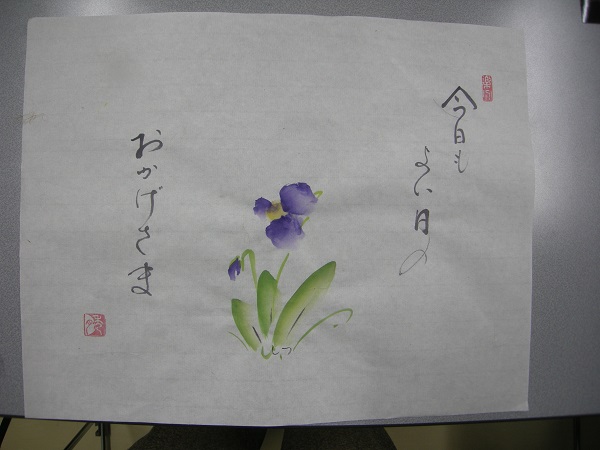 今日も
よい日の
おかげさま